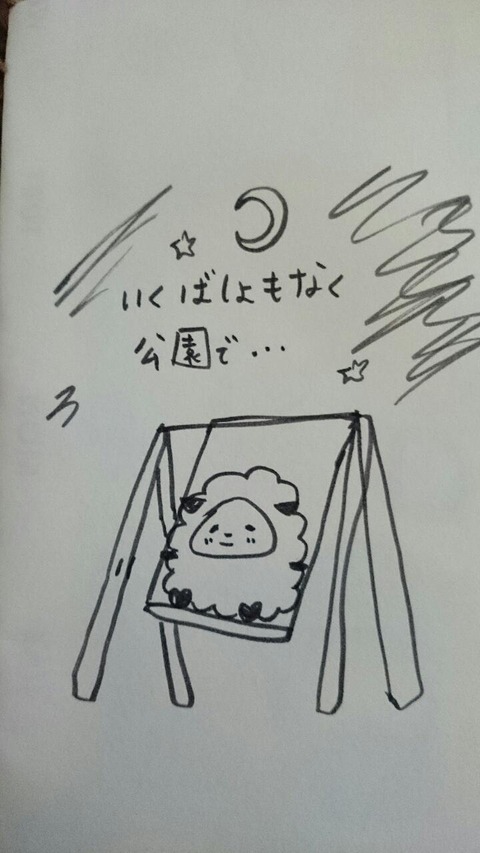 いくばしょもなく
公園で…